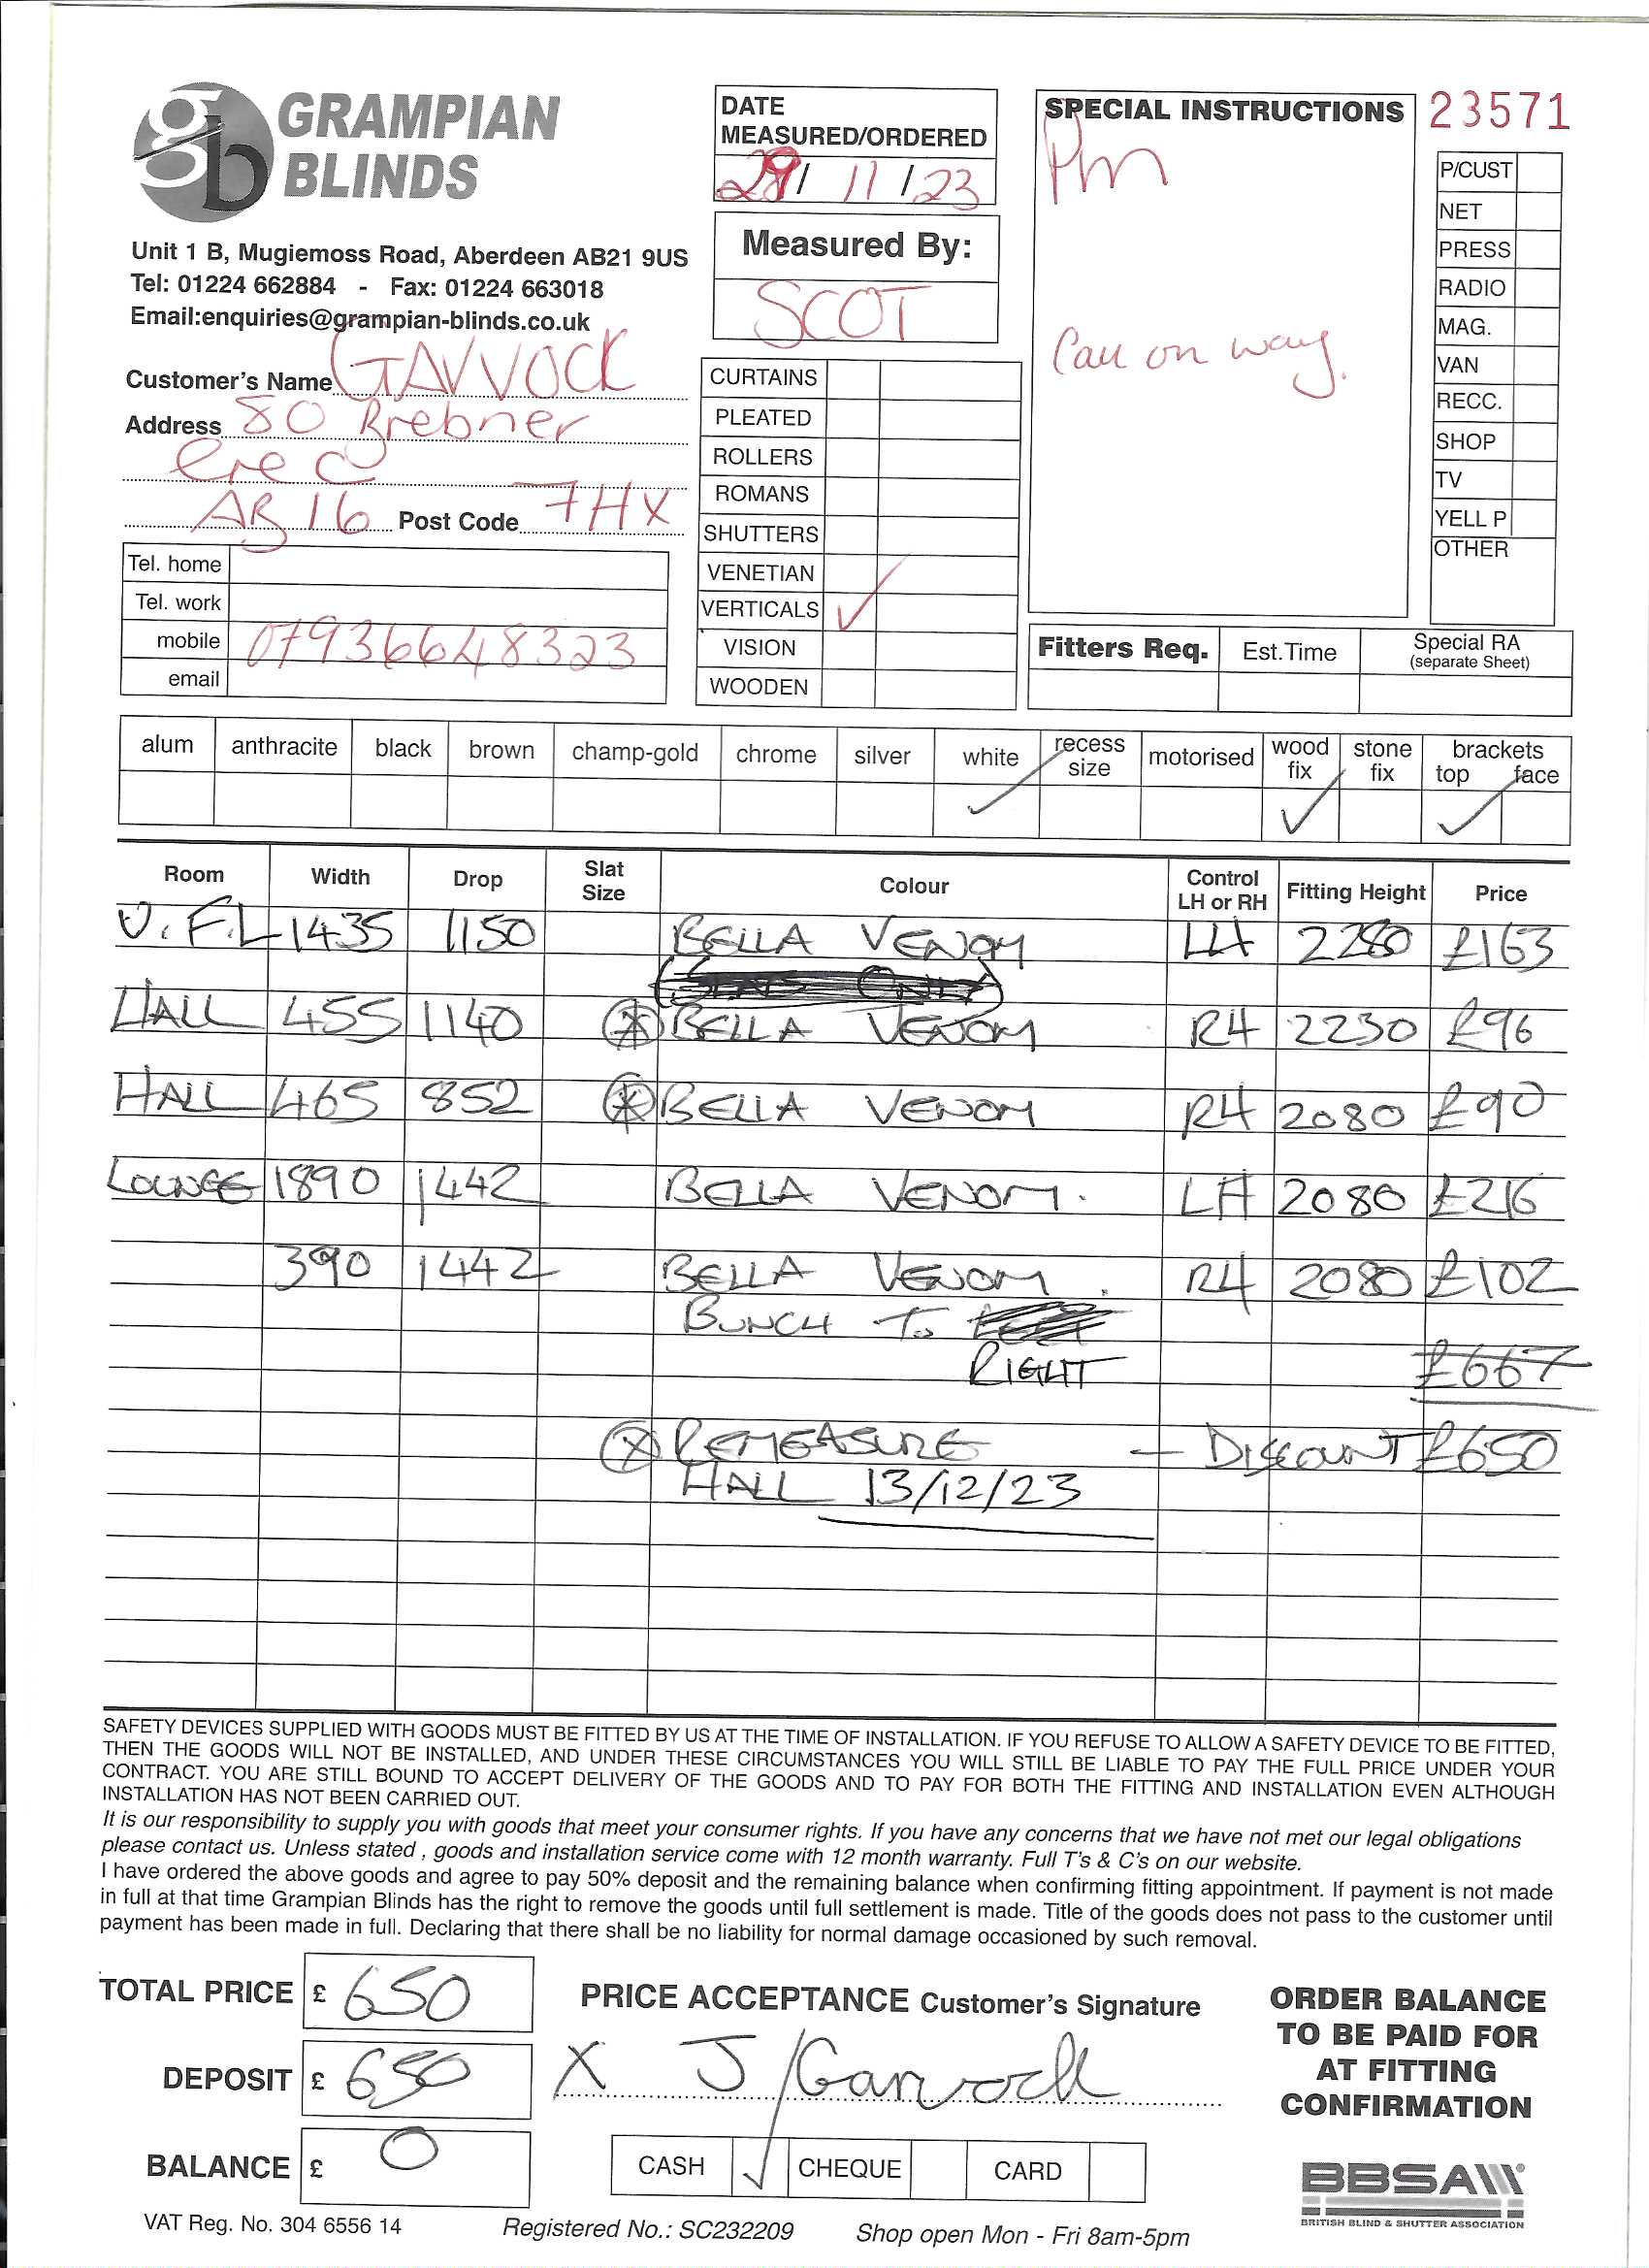 GRAMPIAN
BLINDS
Unit 1 B, Mugiemoss Road, Aberdeen AB21 9US
Tel: 01224 662884 - Fax: 01224 663018
Email:enquiries@grampian-blinds.co.uk
Customer's Name GAVVOCK
Address 80 Brebner
Cre C
AB16 Post Code 7HX
Tel. home
Tel. work
mobile 07936648323
email
DATE
MEASURED/ORDERED
29/ 11 /23
Measured By:
SCOT
CURTAINS
PLEATED
ROLLERS
ROMANS
SHUTTERS
VENETIAN
VERTICALS ✓
VISION
WOODEN
SPECIAL INSTRUCTIONS
Pm
Call on way.
23571
P/CUST
NET
PRESS
RADIO
MAG.
VAN
RECC.
SHOP
TV
YELL P
OTHER
Fitters Req. Est.Time Special RA
(separate Sheet)
alum anthracite black brown champ-gold chrome silver white recess size motorised wood fix stone fix brackets top face
✓ ✓ ✓
Room Width Drop Slat Size Colour Control LH or RH Fitting Height Price
U.F.L 1435 1150 BELLA VENOM LH 2280 £163
HALL 455 1140 BELLA VENOM RH 2230 £96
HALL 465 852 BELLA VENOM RH 2080 £90
LOUNGE 1890 1442 BELLA VENOM. LH 2080 £216
390 1442 BELLA VENOM. RH 2080 £102
BUNCH TO
RIGHT £667
REMEASURE - DISCOUNT £650
HALL 13/12/23
SAFETY DEVICES SUPPLIED WITH GOODS MUST BE FITTED BY US AT THE TIME OF INSTALLATION. IF YOU REFUSE TO ALLOW A SAFETY DEVICE TO BE FITTED,
THEN THE GOODS WILL NOT BE INSTALLED, AND UNDER THESE CIRCUMSTANCES YOU WILL STILL BE LIABLE TO PAY THE FULL PRICE UNDER YOUR
CONTRACT. YOU ARE STILL BOUND TO ACCEPT DELIVERY OF THE GOODS AND TO PAY FOR BOTH THE FITTING AND INSTALLATION EVEN ALTHOUGH
INSTALLATION HAS NOT BEEN CARRIED OUT.
It is our responsibility to supply you with goods that meet your consumer rights. If you have any concerns that we have not met our legal obligations
please contact us. Unless stated , goods and installation service come with 12 month warranty. Full T's & C's on our website.
I have ordered the above goods and agree to pay 50% deposit and the remaining balance when confirming fitting appointment. If payment is not made
in full at that time Grampian Blinds has the right to remove the goods until full settlement is made. Title of the goods does not pass to the customer until
payment has been made in full. Declaring that there shall be no liability for normal damage occasioned by such removal.
TOTAL PRICE £ 650
DEPOSIT £ 650
BALANCE £ 0
PRICE ACCEPTANCE Customer's Signature
X J Garvock
CASH ✓ CHEQUE CARD
ORDER BALANCE
TO BE PAID FOR
AT FITTING
CONFIRMATION
BBSA
BRITISH BLIND & SHUTTER ASSOCIATION
VAT Reg. No. 304 6556 14 Registered No.: SC232209 Shop open Mon - Fri 8am-5pm